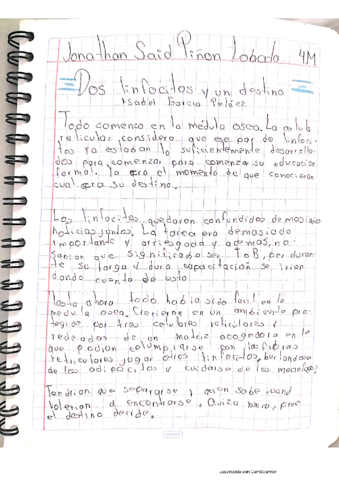 Jonathan Said Piñon Lobato 4M
Dos linfocitos y un destino
Isabel García Peláez
Todo comenzo en la médula osea. La celula
reticular considero que ese par de linfoci-
tos ya estaban lo suficientemente desarrolla-
dos para comenzar para comenzar su educacion
formal, la era el momento de que conocieran
cual era su destino.
Los linfocitos quedaron confundidos demasiadas
noticias juntas. La tarea era demasiado
importante y arriesgada y ademas, no
sabian que significado ser T o B, por duran-
te su larga y dura capacitación se irian
dando cuenta de esto
Hasta ahora todo habia sido facil en la
medula osea. Crecieron en un ambiente pro-
tegido por tres celulas reticulares y
rodeadas de un matriz acogedora en la
que podian columpiarse por las fibras
reticulares jugar otros linfocitos, burlandose
de los adipocitos y cuidarse de los
Tendrian que separarse y quien sabe cuand
volerian a encontrarse. Quiza nunca, pero
el destino decide.